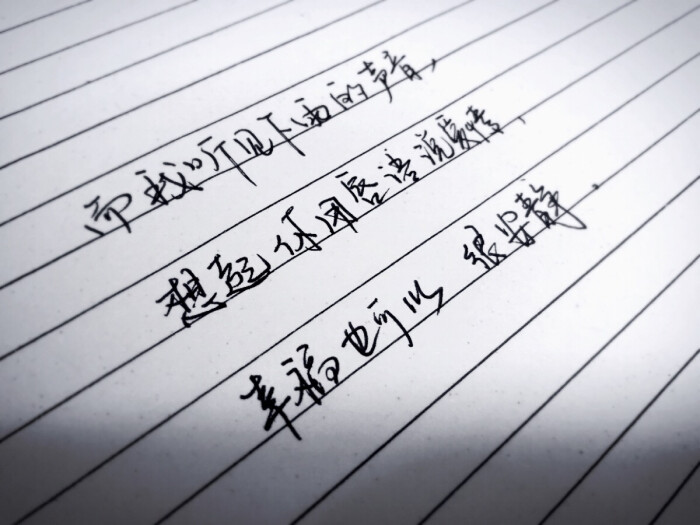 而我听见下雨的声音，
想起你用唇语说爱情，
幸福也可以 很安静．